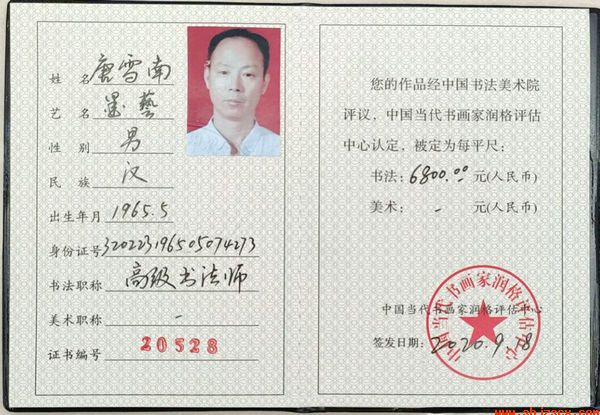 姓 名 唐雪南
艺 名 墨藝
性 别 男
民 族 汉
出生年月 1965.5
身份证号 320223196505074273
书法职称 高级书法师
美术职称 -
证书编号 20528
您的作品经中国书法美术院
评议，中国当代书画家润格评估
中心认定，被定为每平尺：
书法：6800.00 元(人民币)
美术： - 元(人民币)
中国当代书画家润格评估中心
签发日期：2020.9.18
中国当代书画家润格评估中心